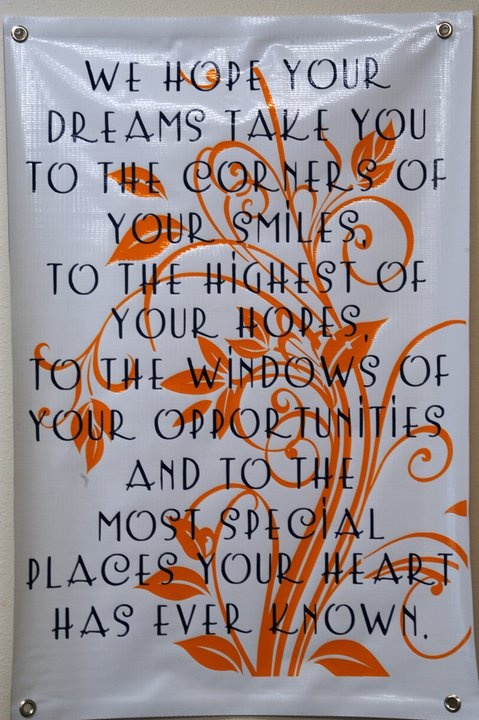 WE HOPE YOUR
DREAMS TAKE YOU
TO THE CORNERS OF
YOUR SMILES,
TO THE HIGHEST OF
YOUR HOPES,
TO THE WINDOWS OF
YOUR OPPORTUNITIES
AND TO THE
MOST SPECIAL
PLACES YOUR HEART
HAS EVER KNOWN.